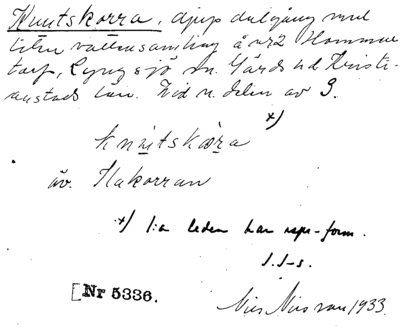 Knutskorra, djup dalgång med
liten vattensamling å nr 2 Hommen
torp, Lyngsjö sn. Gärds hd Kristi-
anstads län. Vid n. delen av 9.
x)
knutskøra
äv. Hakorran
x) 1:a leden har -form.
J.J-s.
[Nr 5336.
Nils Nilsson 1933.